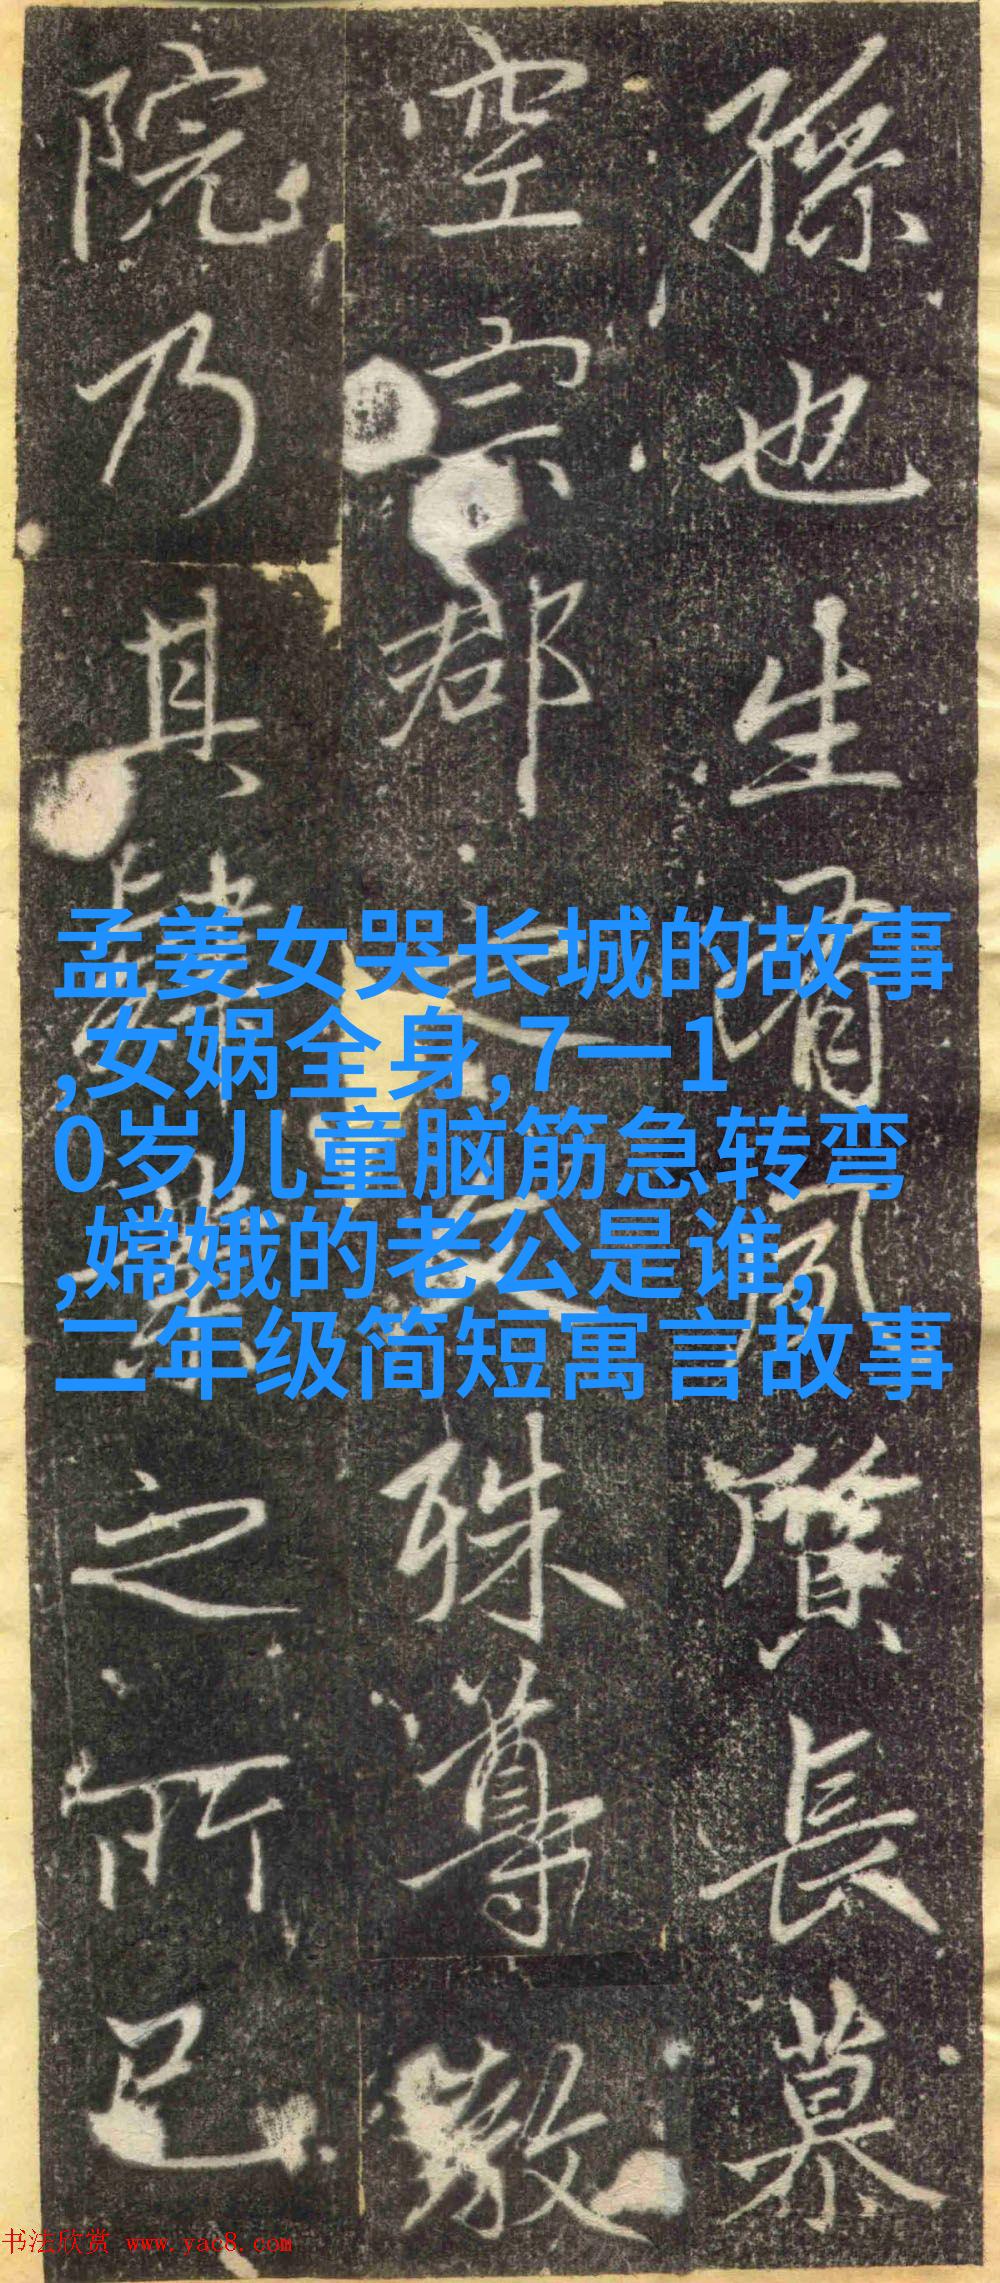 孫也生有風質長慕
空宗郡之文殊尊敬
院乃其肆業之所已
孟姜女哭长城的故事
,女娲全身,7一1
0岁儿童脑筋急转弯
,嫦娥的老公是谁,
二年级简短寓言故事
书法欣赏 www.yac8.com